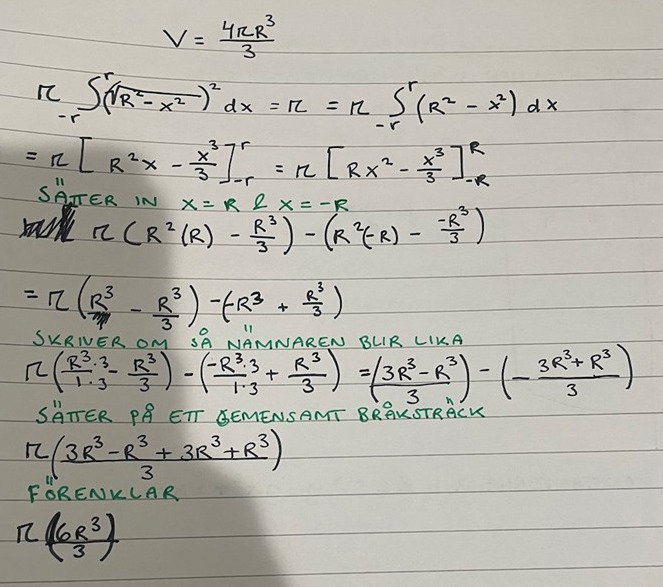 V = 4πR³/3
π ∫₋ᵣʳ (√(R² - x²))² dx = π = π ∫₋ᵣʳ (R² - x²) dx
= π [R²x - x³/3]₋ᵣʳ = π [Rx² - x³/3]₋ᴿᴿ
SÄTTER IN X = R & X = -R
π (R²(R) - R³/3) - (R²(-R) - -R³/3)
= π (R³ - R³/3) - (-R³ + R³/3)
SKRIVER OM SÅ NÄMNAREN BLIR LIKA
π (R³·3/1·3 - R³/3) - (-R³·3/1·3 + R³/3) = (3R³ - R³/3) - (- 3R³ + R³/3)
SÄTTER PÅ ETT GEMENSAMT BRÅKSTRÄCK
π (3R³ - R³ + 3R³ + R³/3)
FÖRENKLAR
π (6R³/3)